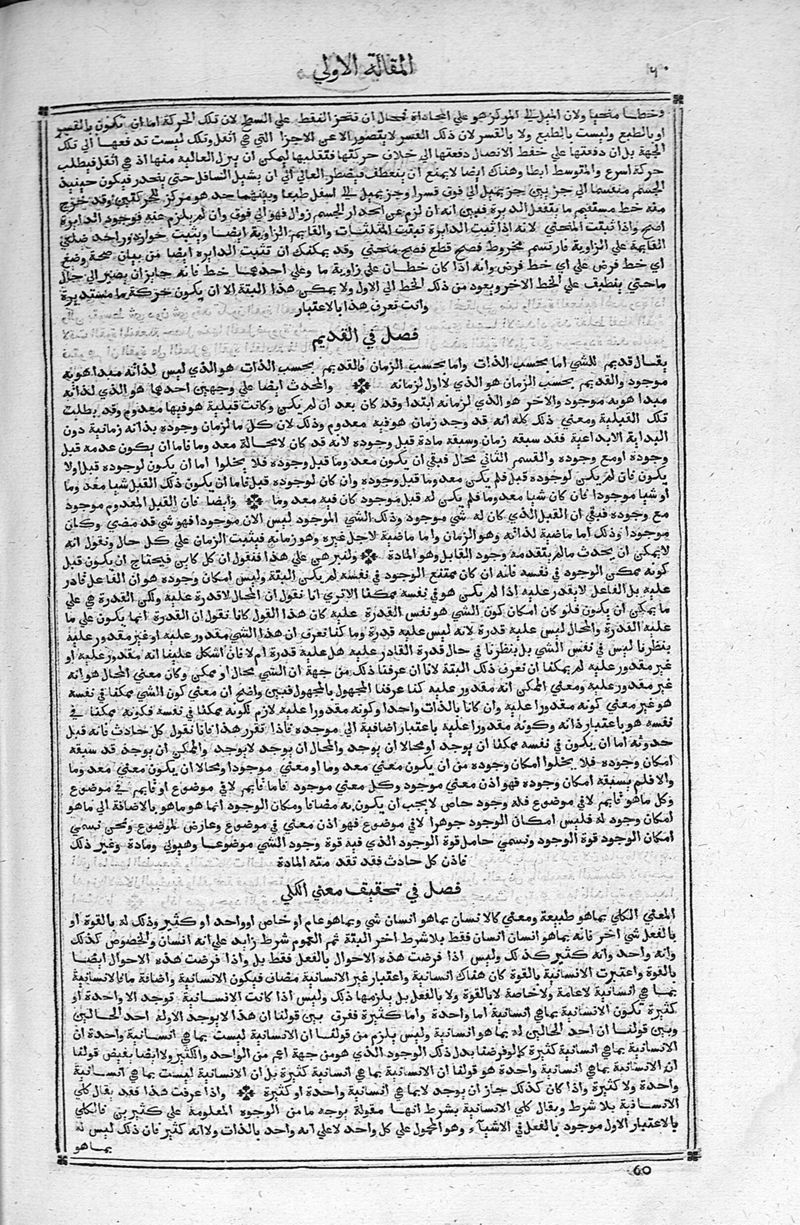 ٦٠
المقالة الاولي
وخطا منحنيا ولان الميل الي المركز هو علي المحاذاة فمحال ان تنحز النقط علي السطح لان تلك الحركة اما ان تكون بالقسر
او بالطبع وليست بالطبع ولا بالقسر لان ذلك القسر لا يتصور الا عن الاجزا التي هي اثقل وتلك ليست تدفعها الي تلك
الجهة بل ان دفعتها علي حفظ الاتصال دفعتها الي خلاف حركتها فتقلبها ليمكن ان ينزل العالية منها اذ هي اثقل فيطلب
حركة اسرع والمتوسط ابطا وهناك ايضا لا يمنع ان ينعطف فيضطر العالي الي ان يشيل السافل حتي ينحدر فيكون حينيذ
الجسم منقسما الي جزيين جز يميل الي فوق قسرا وجز يميل الي اسفل طبعا وبينهما حد هو مركز للحركتين وقد خرج
منه خط مستقيم ما يفعل الدايرة فبين انه ان لزم عن انحدار الجسم زوال فهو الي فوق وان لم يلزم عنه فوجود الدايرة
اصح واذا ثبتت المنحني لانه اذا ثبت الدايرة ثبتت المثلثات والقايم الزاوية ايضا ويثبت جواز دور احد ضلعي
القايمة علي الزاوية فارتسم مخروط فصح قطع فصح منحني وقد يمكنك ان تثبت الدايرة ايضا من بيان صحة وضع
اي خط فرض علي اي خط فرض وانه اذا كان خطان علي زاوية ما وعلي احدهما خط فانه جايز ان يصير الي حال
ما حتي ينطبق علي الخط الاخر ويعود من ذلك الخط الي الاول ولا يمكن هذا البتة الا ان يكون حركة ما مستديرة
وانت تعرف هذا بالاعتبار
فصل في القديم
يقال قديم للشي اما بحسب الذات واما بحسب الزمان فالقديم بحسب الذات هو الذي ليس لذاته مبدا هو به
موجود والقديم بحسب الزمان هو الذي لا اول لزمانه والمحدث ايضا علي وجهين احدهما هو الذي لذاته
مبدا هو به موجود والاخر هو الذي لزمانه ابتدا وقد كان بعد ان لم يكن وكانت قبلية هو فيها معدوم وقد بطلت
تلك القبلية ومعني ذلك كله انه قد وجد زمان هو فيه معدوم وذلك لان كل ما لزمان وجوده بداية زمانية دون
البداية الابداعية فقد سبقه زمان وسبقه مادة قبل وجوده لانه قد كان لا محالة معدوما فاما ان يكون عدمه قبل
وجوده او مع وجوده والقسم الثاني محال فبقي ان يكون معدوما قبل وجوده فلا يخلوا اما ان يكون لوجوده قبل او لا
يكون فان لم يكن لوجوده قبل فلم يكن معدوما قبل وجوده وان كان لوجوده قبل فاما ان يكون ذلك القبل شيا معدوما
او شيا موجودا فان كان شيا معدوما فلم يكن له قبل موجود كان فيه معدوما وايضا فان القبل المعدوم موجود
مع وجوده فبقي ان القبل الذي كان له شي موجود وذلك الشي الموجود ليس الان موجودا فهو شي قد مضي وكان
موجودا وذلك اما ماضية لذاته وهو الزمان واما ماضية لاجل غيره وهو زمانه فيثبت الزمان علي كل حال ونقول انه
لا يمكن ان يحدث ما لم يتقدمه وجود القابل وهو المادة ولنبرهن علي هذا فنقول ان كل كاين فيحتاج ان يكون قبل
كونه ممكن الوجود في نفسه فانه ان كان ممتنع الوجود في نفسه لم يكن البتة وليس امكان وجوده هو ان الفاعل قادر
عليه بل الفاعل لا يقدر عليه اذا لم يكن هو في نفسه ممكنا الا تري انا نقول ان المحال لا قدرة عليه ولكن القدرة هي علي
ما يمكن ان يكون فلو كان امكان كون الشي هو نفس القدرة عليه كان هذا القول كانا نقول ان القدرة انما يكون علي ما
عليه القدرة والمحال ليس عليه قدرة لانه ليس عليه قدرة وما كنا نعرف ان هذا الشي مقدور عليه او غير مقدور عليه
بنظرنا ليس في نفس الشي بل بنظرنا في حال قدرة القادر عليه هل عليه قدرة ام لا فان اشكل علينا انه مقدور عليه او
غير مقدور عليه لم يمكنا ان نعرف ذلك البتة لانا ان عرفنا ذلك من جهة ان الشي محال او ممكن وكان معني المحال هو انه
غير مقدور عليه ومعني الممكن انه مقدور عليه كنا عرفنا المجهول بالمجهول فبين واضح ان معني كون الشي ممكنا في نفسه
هو غير معني كونه مقدورا عليه وان كانا بالذات واحدا وكونه مقدورا عليه لازم لكونه ممكنا في نفسه فكونه ممكنا في
نفسه هو باعتبار ذاته وكونه مقدورا عليه باعتبار اضافية الي موجده فاذا تقرر هذا فانا نقول كل حادث فانه قبل
حدوثه اما ان يكون في نفسه ممكنا ان يوجد او محالا ان يوجد والمحال ان يوجد لا يوجد والممكن ان يوجد قد سبقه
امكان وجوده فلا يخلوا امكان وجوده من ان يكون معني معدوما او معني موجودا ومحالا ان يكون معني معدوما
والا فلم يسبقه امكان وجوده فهو اذن معني موجود وكل معني موجود فاما قايم لا في موضوع او قايم في موضوع
وكل ما هو قايم لا في موضوع فله وجود خاص لا يجب ان يكون به مضافا وامكان الوجود انما هو ما هو بالاضافة الي ما هو
امكان وجود له فليس امكان الوجود جوهرا لا في موضوع فهو اذن معني في موضوع وعارض لموضوع ونحن نسمي
امكان الوجود قوة الوجود ونسمي حامل قوة الوجود الذي فيه قوة وجود الشي موضوعا وهيولي ومادة وغير ذلك
فاذن كل حادث فقد تقدمته المادة
فصل في تحقيق معني الكلي
المعني الكلي بما هو طبيعة ومعني كالانسان بما هو انسان شي وبما هو عام او خاص او واحد او كثير وذلك له بالقوة او
بالفعل شي اخر فانه بما هو انسان انسان فقط بلا شرط اخر البتة ثم العموم شرط زايد علي انه انسان والخصوص كذلك
وانه واحد وانه كثير كذلك وليس اذا فرضت هذه الاحوال بالفعل فقط بل واذا فرضت هذه الاحوال ايضا
بالقوة واعتبرت الانسانية بالقوة كان هناك انسانية واعتبار غير الانسانية مضاف فيكون الانسانية واضافة ما فالانسانية
بما هي انسانية لا عامة ولا خاصة لا بالقوة ولا بالفعل بل يلزمها ذلك وليس اذا كانت الانسانية توجد الا واحدة او
كثيرة تكون الانسانية بما هي انسانية اما واحدة واما كثيرة ففرق بين قولنا ان هذا لا يوجد الا وله احد الحالين
وبين قولنا ان احد الحالين له بما هو انسانية وليس يلزم من قولنا ان الانسانية ليست بما هي انسانية واحدة ان
الانسانية بما هي انسانية كثيرة كما لو فرضنا بدل ذلك الوجود الذي هو من جهة اعم من الواحد والكثير ولا ايضا نقيض قولنا
ان الانسانية بما هي انسانية واحدة هو قولنا ان الانسانية بما هي انسانية كثيرة بل ان الانسانية ليست بما هي انسانية
واحدة ولا كثيرة واذا كان كذلك جاز ان يوجد لا بما هي انسانية واحدة او كثيرة واذا عرفت هذا فقد يقال كلي
الانسانية بلا شرط ويقال كلي الانسانية بشرط انها مقولة بوجه ما من الوجوه المعلومة علي كثيرين فالكلي
بالاعتبار الاول موجود بالفعل في الاشيآء وهو المحمول علي كل واحد لا علي انه واحد بالذات ولا انه كثير فان ذلك ليس له
بما هو
60